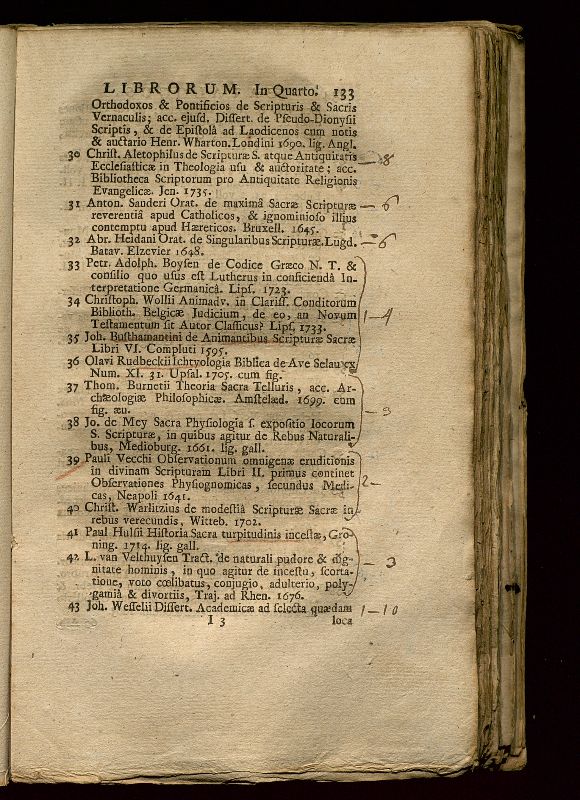 LIBRORUM. In Quarto. 133
Orthodoxos & Pontificios de Scripturis & Sacris
Vernaculis; acc. ejusd. Dissert. de Pseudo-Dionysii
Scriptis, & de Epistolâ ad Laodicenos cum notis
& auctario Henr. Wharton. Londini 1690. lig. Angl.
30 Christ. Aletophilus de Scripturæ S. atque Antiquitatis — 8
Ecclesiasticæ in Theologia usu & auctoritate; acc.
Bibliotheca Scriptorum pro Antiquitate Religionis
Evangelicæ. Jen. 1735.
31 Anton. Sanderi Orat. de maximâ Sacræ Scripturæ — 6
reverentiâ apud Catholicos, & ignominioso illius
contemptu apud Hæreticos. Bruxell. 1645.
32 Abr. Heidani Orat. de Singularibus Scripturæ. Lugd. — 6
Batav. Elzevier 1648.
33 Petr. Adolph. Boysen de Codice Græco N. T. &
consilio quo usus est Lutherus in conficiendâ In-
terpretatione Germanicâ. Lips. 1723.
34 Christoph. Wollii Animadv. in Clariss. Conditorum
Biblioth. Belgicæ Judicium, de eo, an Novum 1—4
Testamentum sit Autor Classicus? Lips. 1733.
35 Joh. Busthamantini de Animantibus Scripturæ Sacræ
Libri VI. Compluti 1595.
36 Olavi Rudbeckii Ichtyologia Biblica de Ave Selau ex
Num. XI. 31. Upsal. 1705. cum fig.
37 Thom. Burnetii Theoria Sacra Telluris, acc. Ar-
chæologiæ Philosophicæ. Amstelæd. 1699. cum — 3
fig. æu.
38 Jo. de Mey Sacra Physiologia s. expositio locorum
S. Scripturæ, in quibus agitur de Rebus Naturali-
bus, Medioburg. 1661. lig. gall.
39 Pauli Vecchi Observationum omnigenæ eruditionis
in divinam Scripturam Libri II. primus continet
Observationes Physiognomicas, secundus Medi- 2—
cas, Neapoli 1641.
40 Christ. Warlitzius de modestiâ Scripturæ Sacræ in
rebus verecundis, Witteb. 1702.
41 Paul Hulsii Historia Sacra turpitudinis incestæ, Gro-
ning. 1714. lig. gall.
42 L. van Velthuysen Tract. de naturali pudore & dig- — 3
nitate hominis, in quo agitur de incestu, scorta-
tione, voto cœlibatus, conjugio, adulterio, poly-
gamiâ & divortiis, Traj. ad Rhen. 1676.
43 Joh. Wesselii Dissert. Academicæ ad selecta quædam 1—10
I 3 loca